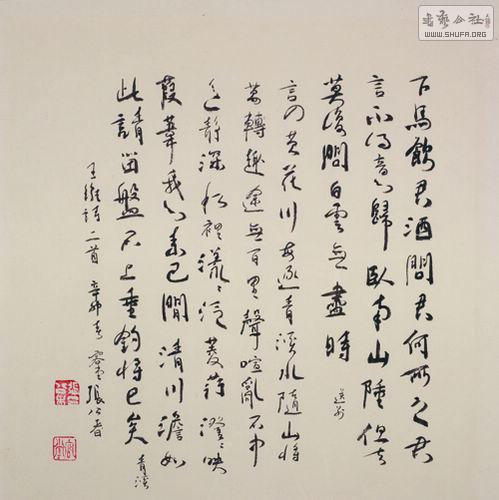 下馬飲君酒問君何所之君
言不得意歸臥南山陲但去
莫復問白雲無盡時 送別
言入黃花川每逐青溪水隨山將
萬轉趣途無百里聲喧亂石中
色靜深松裡漾〻泛菱荇澄〻映
葭葦我心素已閒清川澹如
此請留盤石上垂釣將已矣 青溪
王維詩二首 辛卯春 張公者
書藝公社
WWW.SHUFA.ORG